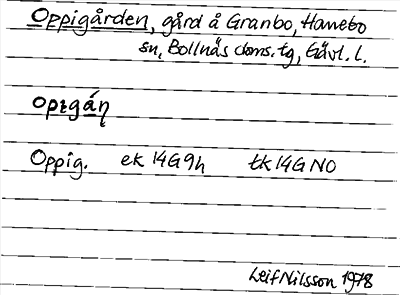 Oppigården, gård å Granbo, Hanebo
sn, Bollnäs doms. tg, Gävl. l.
Oppig. ek 14G9h tk14GNO
Leif Nilsson 1978